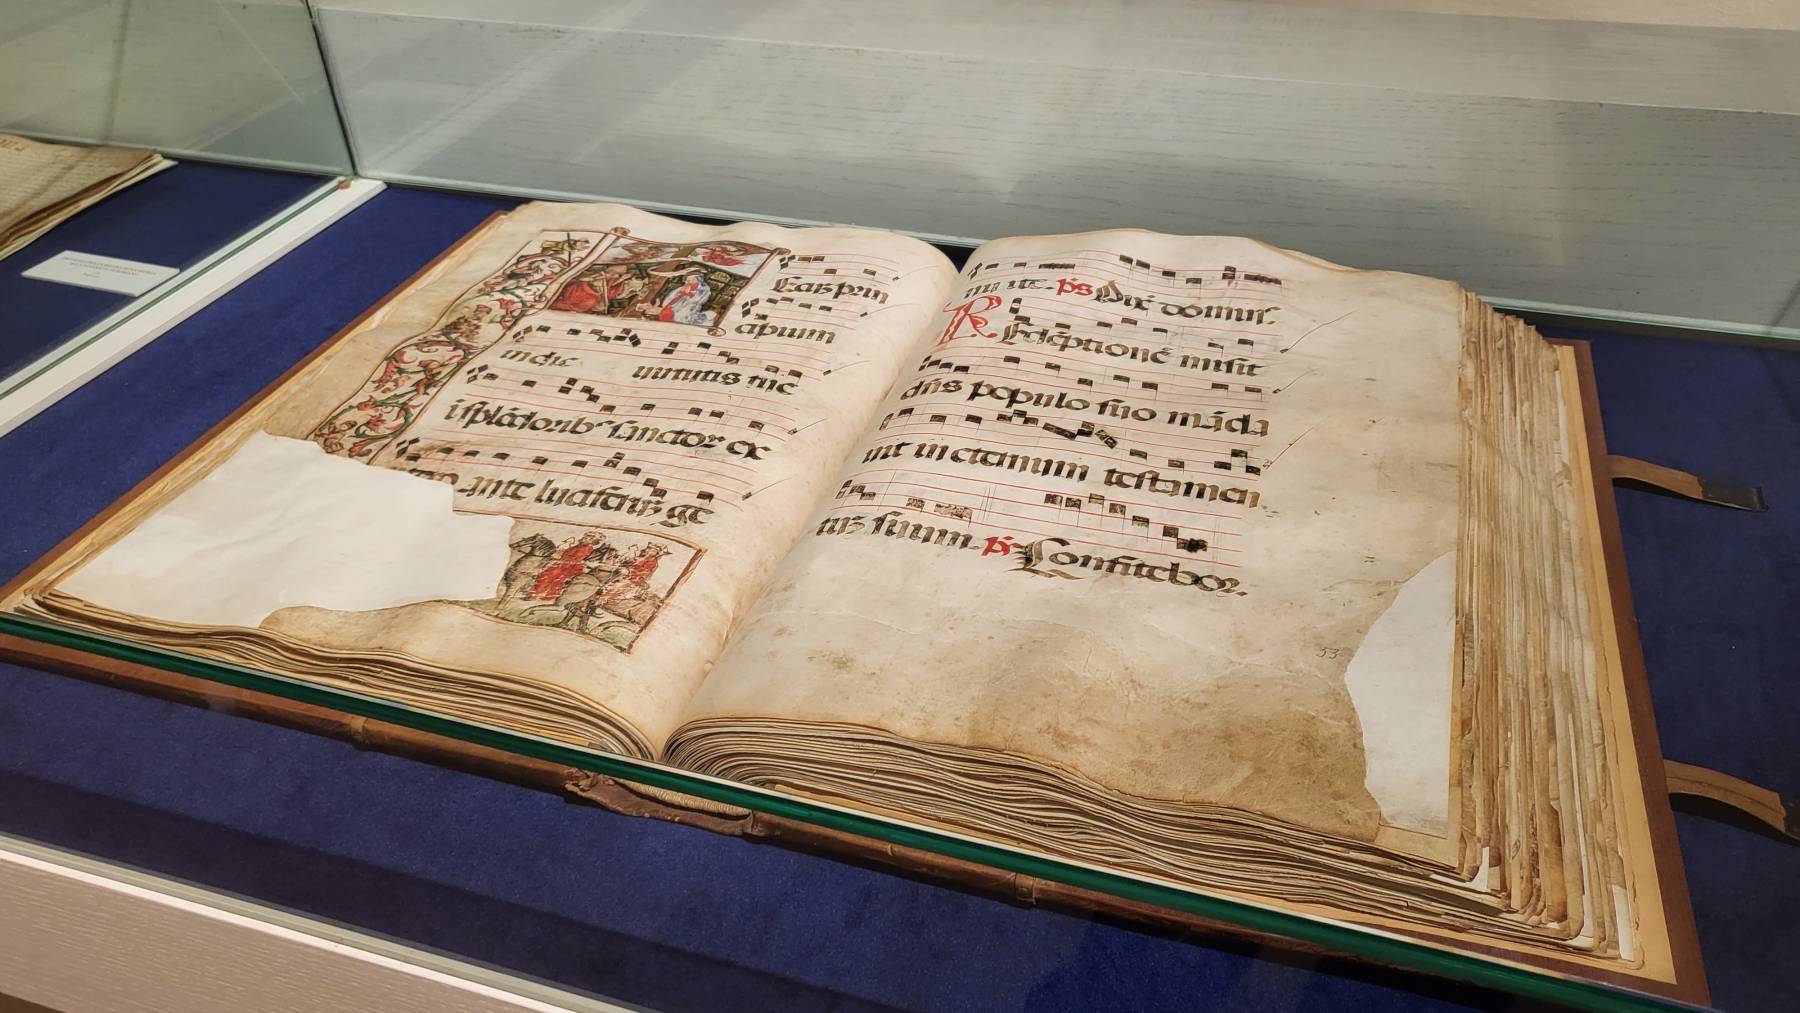 Ecũ prin
cipium
in die virtutis tue
i splẽdorib' sanctoꝝ ex
ante luciferũ ge
nui te. p̃s Dix̃ domiñ.
Redẽptionẽ misit
dñs populo suo mãda
vit in eternum testamen
tuʒ suum. p̃s Confitebor.
53